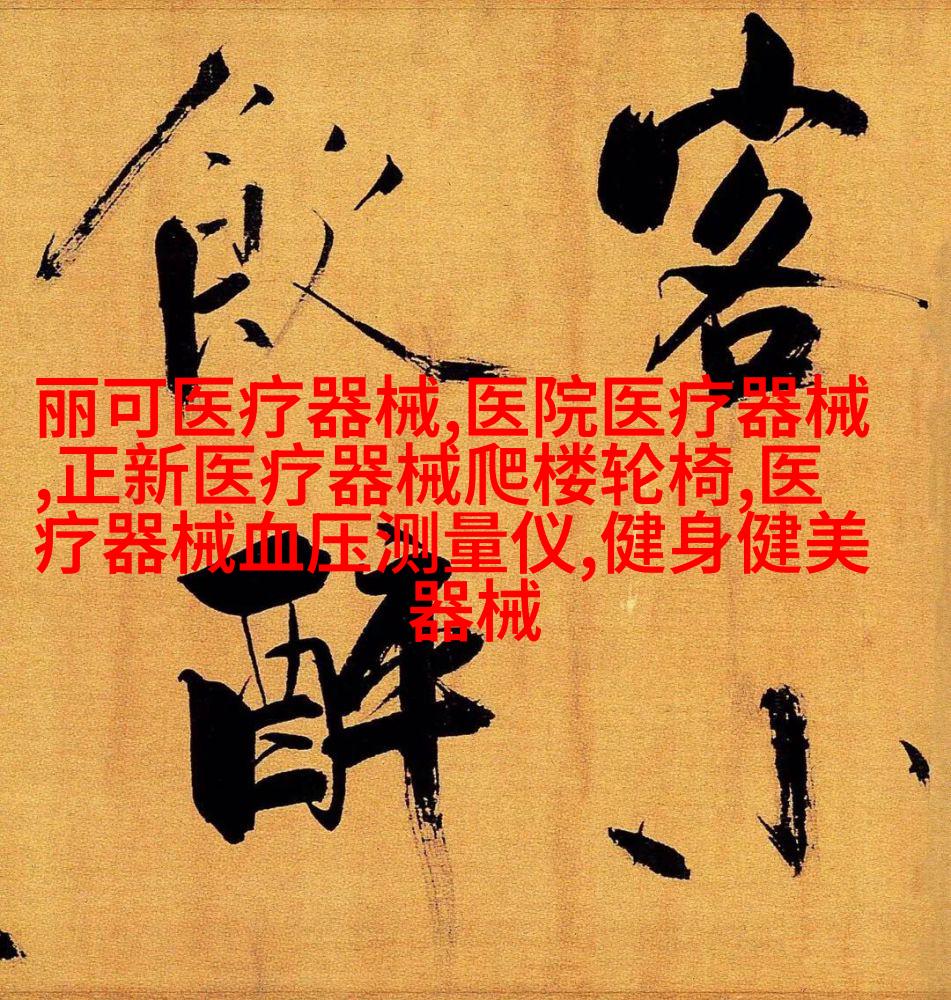 客小
飲醉
丽可医疗器械,医院医疗器械
,正新医疗器械爬楼轮椅,医
疗器械血压测量仪,健身健美
器械